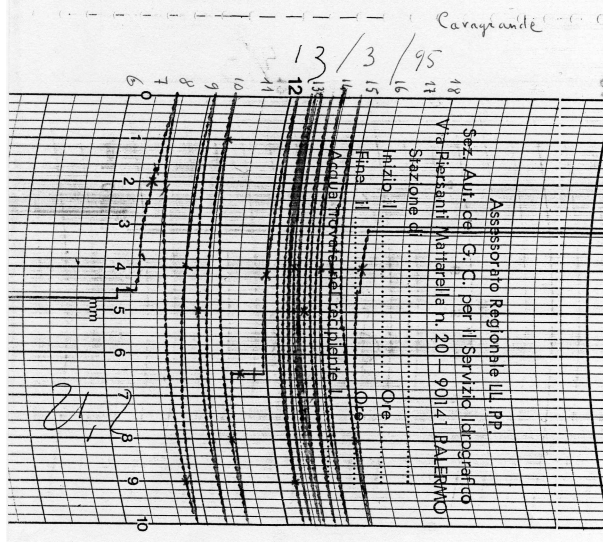 Cavagrande
13/3/95
6 7 8 9 10 11 12 13 14 15 16 17 18
0 1 2 3 4 5 6 7 8 9 10
mm
Assessorato Regionale LL. PP.
Sez. Aut. del G. C. per il Servizio Idrografico
Via Piersanti Mattarella n. 20 – 90141 PALERMO
Stazione di
Inizio il Ore
Fine il Ore
Acqua trovata nel recipiente l.
21,2